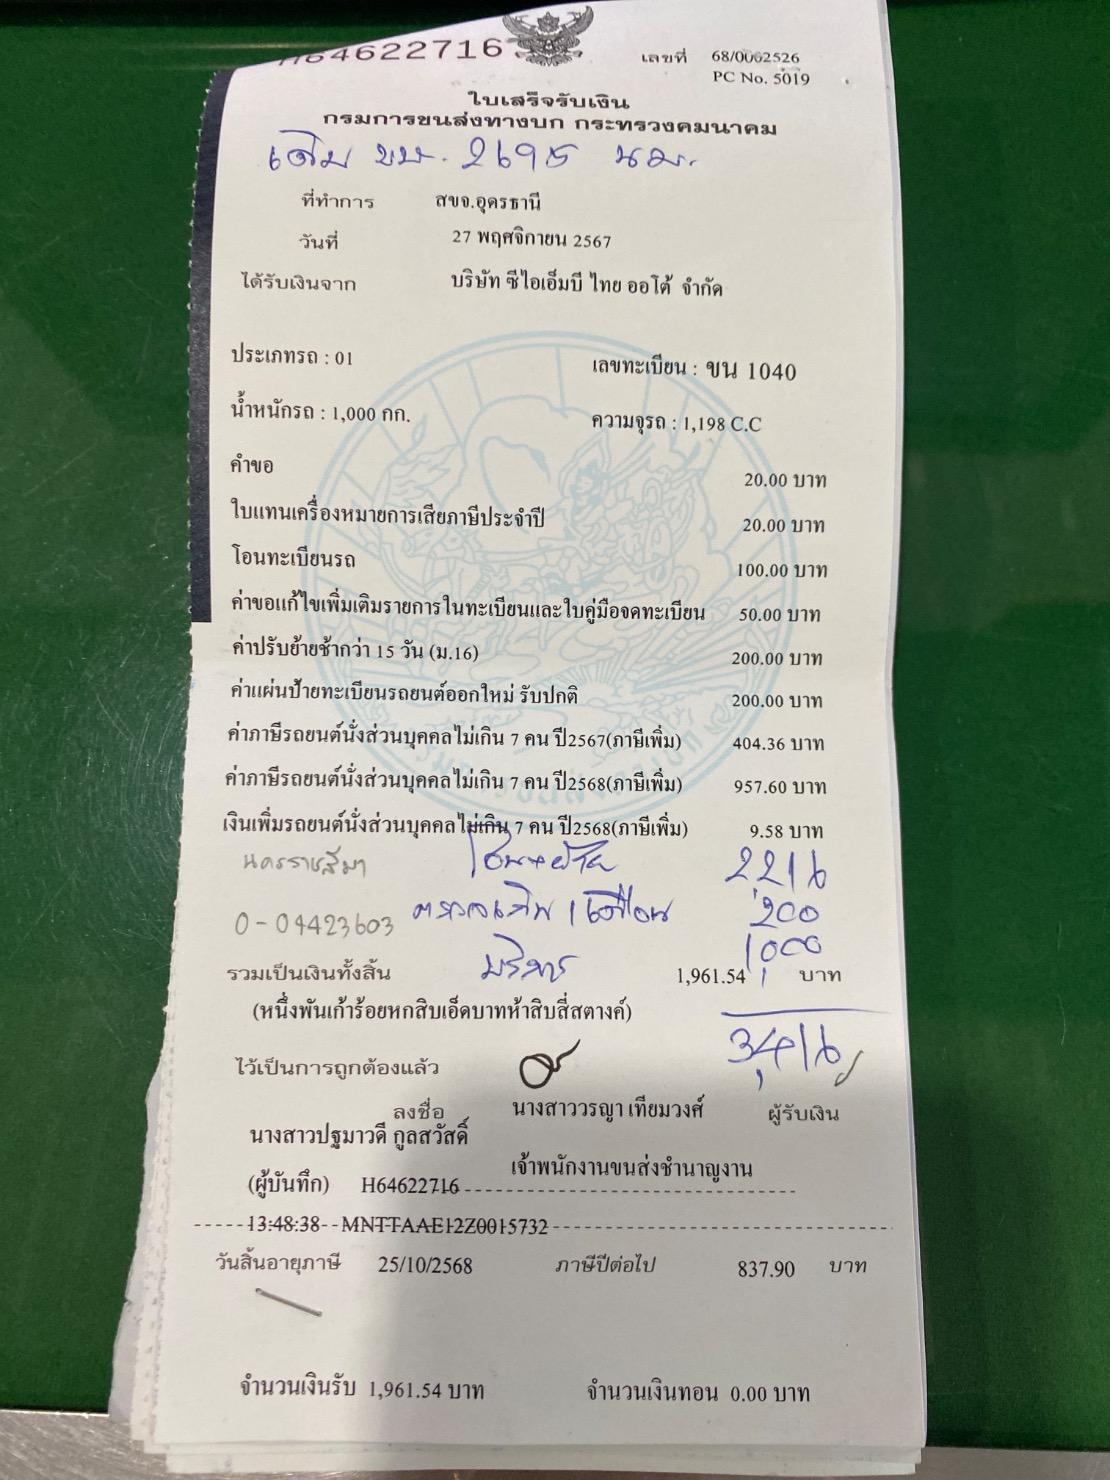 H64622716
เลขที่ 68/0002526
PC No. 5019
ใบเสร็จรับเงิน
กรมการขนส่งทางบก กระทรวงคมนาคม
เดิม ขบ. 2695 นม.
ที่ทำการ สขจ.อุดรธานี
วันที่ 27 พฤศจิกายน 2567
ได้รับเงินจาก บริษัท ซีไอเอ็มบี ไทย ออโต้ จำกัด
ประเภทรถ : 01 เลขทะเบียน : ขน 1040
น้ำหนักรถ : 1,000 กก. ความจุรถ : 1,198 C.C
คำขอ 20.00 บาท
ใบแทนเครื่องหมายการเสียภาษีประจำปี 20.00 บาท
โอนทะเบียนรถ 100.00 บาท
ค่าขอแก้ไขเพิ่มเติมรายการในทะเบียนและใบคู่มือจดทะเบียน 50.00 บาท
ค่าปรับย้ายช้ากว่า 15 วัน (ม.16) 200.00 บาท
ค่าแผ่นป้ายทะเบียนรถยนต์ออกใหม่ รับปกติ 200.00 บาท
ค่าภาษีรถยนต์นั่งส่วนบุคคลไม่เกิน 7 คน ปี2567(ภาษีเพิ่ม) 404.36 บาท
ค่าภาษีรถยนต์นั่งส่วนบุคคลไม่เกิน 7 คน ปี2568(ภาษีเพิ่ม) 957.60 บาท
เงินเพิ่มรถยนต์นั่งส่วนบุคคลไม่เกิน 7 คน ปี2568(ภาษีเพิ่ม) 9.58 บาท
นครราชสีมา โอน+ย้าย 2,216
0-04423603 ตรวจเกิน 1 เดือน 200
บริการ 1,000
รวมเป็นเงินทั้งสิ้น 1,961.54 บาท
(หนึ่งพันเก้าร้อยหกสิบเอ็ดบาทห้าสิบสี่สตางค์)
3,416
ไว้เป็นการถูกต้องแล้ว
ลงชื่อ นางสาววรญา เทียมวงศ์ ผู้รับเงิน
นางสาวปฐมาวดี กูลสวัสดิ์
เจ้าพนักงานขนส่งชำนาญงาน
(ผู้บันทึก) H64622716
13:48:38 MNTTAAE12Z0015732
วันสิ้นอายุภาษี 25/10/2568 ภาษีปีต่อไป 837.90 บาท
จำนวนเงินรับ 1,961.54 บาท จำนวนเงินทอน 0.00 บาท